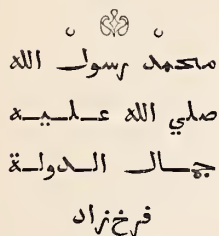 محمد رسول الله
صلي الله عليه
جمال الدولة
فرخزاد